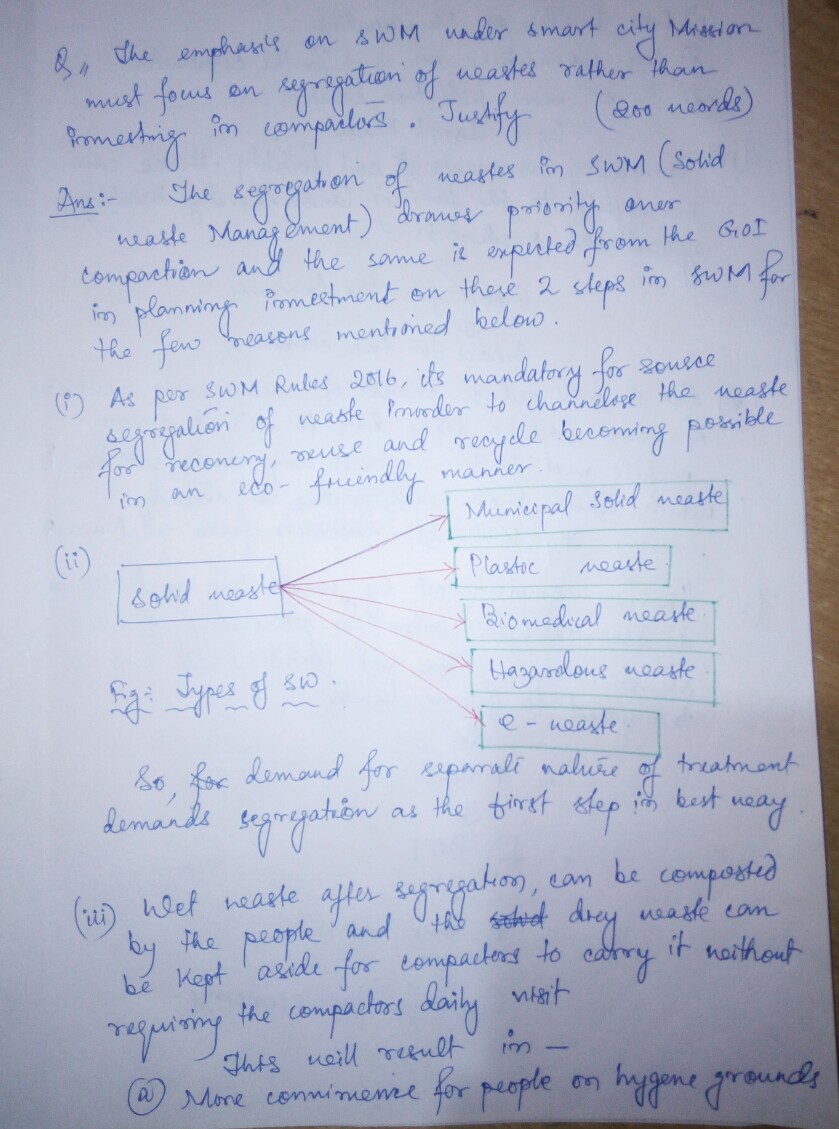 Q,, The emphasis on SWM under smart city Mission
must focus on segregation of wastes rather than
investing in compactors. Justify (200 words)
Ans:- The segregation of wastes in SWM (Solid
waste Management) draws priority over
compaction and the same is expected from the GOI
in planning investment on these 2 steps in SWM for
the few reasons mentioned below.
(i) As per SWM Rules 2016, its mandatory for source
segregation of waste inorder to channelose the waste
for recovery, reuse and recycle becoming possible
in an eco-friendly manner.
Municipal Solid waste
(ii)
Solid waste
Plastic waste
Biomedical waste
Hazardous waste
e-waste
Fig: Types of SW.
So, for demand for separate nature of treatment
demands segregation as the first step in best way.
(iii) Wet waste after segregation, can be composted
by the people and the solid drey waste can
be kept aside for compactors to carry it without
requiring the compactors daily visit
This will result in —
(a) More convinence for people on hygene grounds